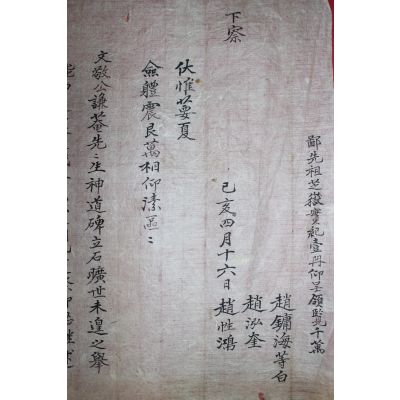 鄙先祖芝嶽實紀壹冊仰呈領覽千萬
趙鏞海等白
趙泓奎
下察
己亥四月十六日 趙性鴻
伏惟蓂夏
僉體震艮萬相仰溱區〻
文敬公謙菴先〻生神道碑立石曠世未遑之擧